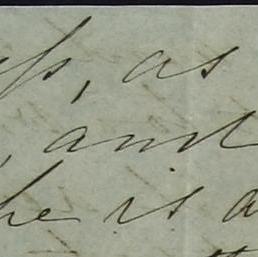 , as
, and
he is a